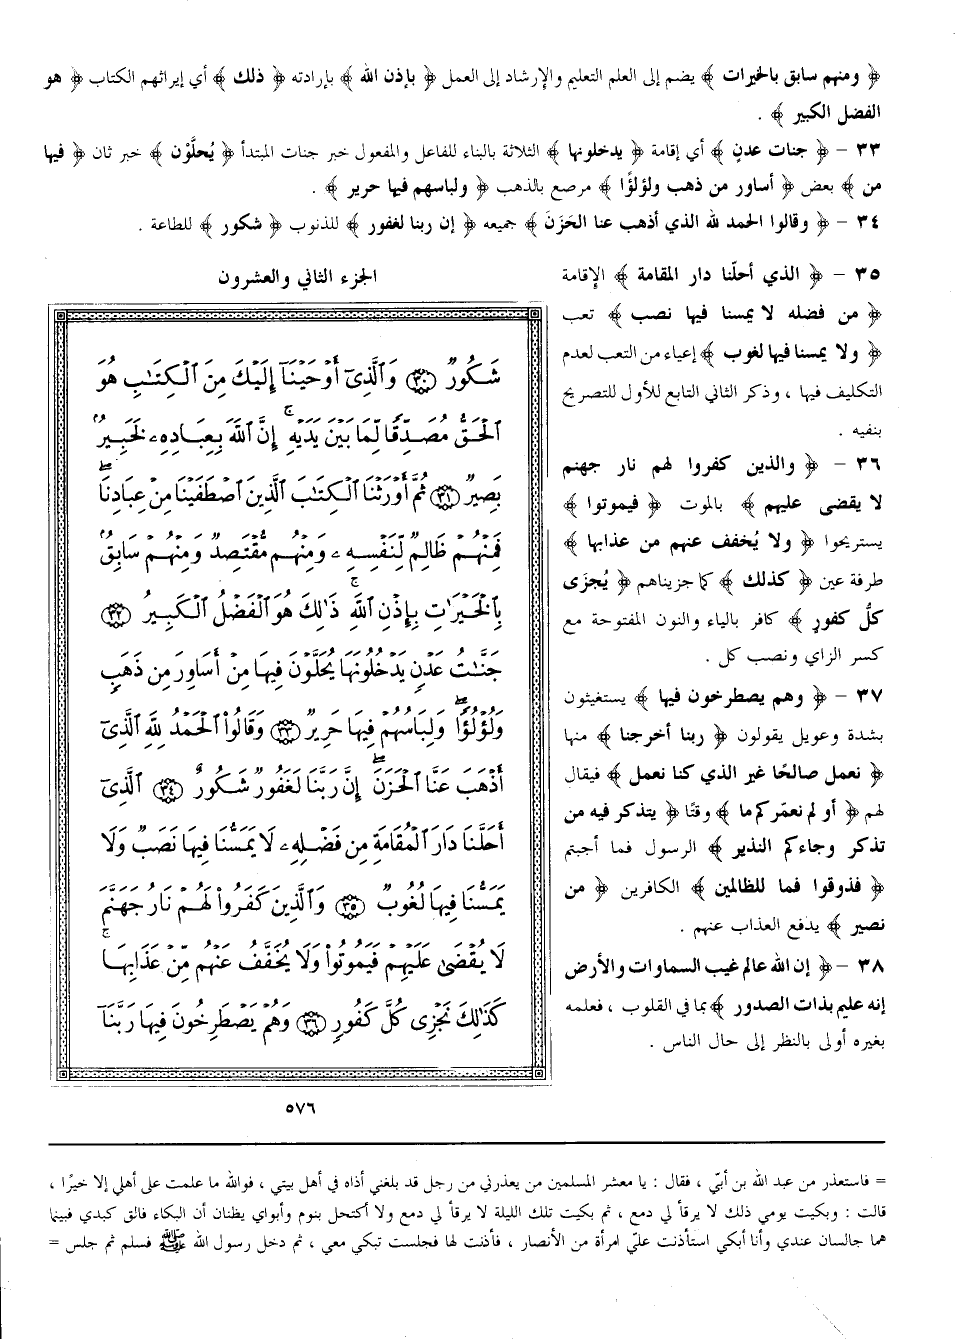 ﴿ ومنهم سابق بالخيرات ﴾ يضم إلى العلم التعليم والإرشاد إلى العمل ﴿ بإذن الله ﴾ بإرادته ﴿ ذلك ﴾ أي إيراثهم الكتاب ﴿ هو
الفضل الكبير ﴾ .
٣٣ - ﴿ جنات عدنٍ ﴾ أي إقامة ﴿ يدخلونها ﴾ الثلاثة بالبناء للفاعل والمفعول خبر جنات المبتدأ ﴿ يُحلَّوْن ﴾ خبر ثان ﴿ فيها
من ﴾ بعض ﴿ أساور من ذهب ولؤلؤًا ﴾ مرصع بالذهب ﴿ ولباسهم فيها حرير ﴾ .
٣٤ - ﴿ وقالوا الحمد لله الذي أذهب عنا الحَزَنَ ﴾ جميعه ﴿ إن ربنا لغفور ﴾ للذنوب ﴿ شكور ﴾ للطاعة .
٣٥ - ﴿ الذي أحلّنا دار المقامة ﴾ الإقامة
﴿ من فضله لا يمسنا فيها نصب ﴾ تعب
﴿ ولا يمسنا فيها لغوب ﴾ إعياء من التعب لعدم
التكليف فيها ، وذكر الثاني التابع للأول للتصريح
بنفيه .
٣٦ - ﴿ والذين كفروا لهم نار جهنم
لا يقضى عليهم ﴾ بالموت ﴿ فيموتوا ﴾
يستريحوا ﴿ ولا يُخفف عنهم من عذابها ﴾
طرفة عين ﴿ كذلك ﴾ كما جزيناهم ﴿ يُجزَى
كلُّ كفورٍ ﴾ كافر بالياء والنون المفتوحة مع
كسر الزاي ونصب كل .
٣٧ - ﴿ وهم يصطرخون فيها ﴾ يستغيثون
بشدة وعويل يقولون ﴿ ربنا أخرجنا ﴾ منها
﴿ نعمل صالحًا غير الذي كنا نعمل ﴾ فيقال
لهم ﴿ أو لم نعمّركم ما ﴾ وقتًا ﴿ يتذكر فيه من
تذكر وجاءكم النذير ﴾ الرسول فما أجبتم
﴿ فذوقوا فما للظالمين ﴾ الكافرين ﴿ من
نصير ﴾ يدفع العذاب عنهم .
٣٨ - ﴿ إن الله عالم غيب السماوات والأرض
إنه عليم بذات الصدور ﴾ بما في القلوب ، فعلمه
بغيره أولى بالنظر إلى حال الناس .
الجزء الثاني والعشرون
شَكُورٌ ٣٠ وَٱلَّذِىٓ أَوْحَيْنَآ إِلَيْكَ مِنَ ٱلْكِتَٰبِ هُوَ
ٱلْحَقُّ مُصَدِّقًا لِّمَا بَيْنَ يَدَيْهِ ۗ إِنَّ ٱللَّهَ بِعِبَادِهِۦ لَخَبِيرٌۢ
بَصِيرٌ ٣١ ثُمَّ أَوْرَثْنَا ٱلْكِتَٰبَ ٱلَّذِينَ ٱصْطَفَيْنَا مِنْ عِبَادِنَا ۖ
فَمِنْهُمْ ظَالِمٌ لِّنَفْسِهِۦ وَمِنْهُم مُّقْتَصِدٌ وَمِنْهُمْ سَابِقٌۢ
بِٱلْخَيْرَٰتِ بِإِذْنِ ٱللَّهِ ۚ ذَٰلِكَ هُوَ ٱلْفَضْلُ ٱلْكَبِيرُ ٣٢
جَنَّٰتُ عَدْنٍ يَدْخُلُونَهَا يُحَلَّوْنَ فِيهَا مِنْ أَسَاوِرَ مِن ذَهَبٍ
وَلُؤْلُؤًا ۖ وَلِبَاسُهُمْ فِيهَا حَرِيرٌ ٣٣ وَقَالُوا۟ ٱلْحَمْدُ لِلَّهِ ٱلَّذِىٓ
أَذْهَبَ عَنَّا ٱلْحَزَنَ ۖ إِنَّ رَبَّنَا لَغَفُورٌ شَكُورٌ ٣٤ ٱلَّذِىٓ
أَحَلَّنَا دَارَ ٱلْمُقَامَةِ مِن فَضْلِهِۦ لَا يَمَسُّنَا فِيهَا نَصَبٌ وَلَا
يَمَسُّنَا فِيهَا لُغُوبٌ ٣٥ وَٱلَّذِينَ كَفَرُوا۟ لَهُمْ نَارُ جَهَنَّمَ
لَا يُقْضَىٰ عَلَيْهِمْ فَيَمُوتُوا۟ وَلَا يُخَفَّفُ عَنْهُم مِّنْ عَذَابِهَا ۚ
كَذَٰلِكَ نَجْزِى كُلَّ كَفُورٍ ٣٦ وَهُمْ يَصْطَرِخُونَ فِيهَا رَبَّنَآ
٥٧٦
= فاستعذر من عبد الله بن أبيّ ، فقال : يا معشر المسلمين من يعذرني من رجل قد بلغني أذاه في أهل بيتي ، فوالله ما علمت على أهلي إلا خيرًا ،
قالت : وبكيت يومي ذلك لا يرقأ لي دمع ، ثم بكيت تلك الليلة لا يرقأ لي دمع ولا أكتحل بنوم وأبواي يظنان أن البكاء فالق كبدي فبينما
هما جالسان عندي وأنا أبكي استأذنت عليّ امرأة من الأنصار ، فأذنت لها فجلست تبكي معي ، ثم دخل رسول الله ﷺ فسلم ثم جلس =